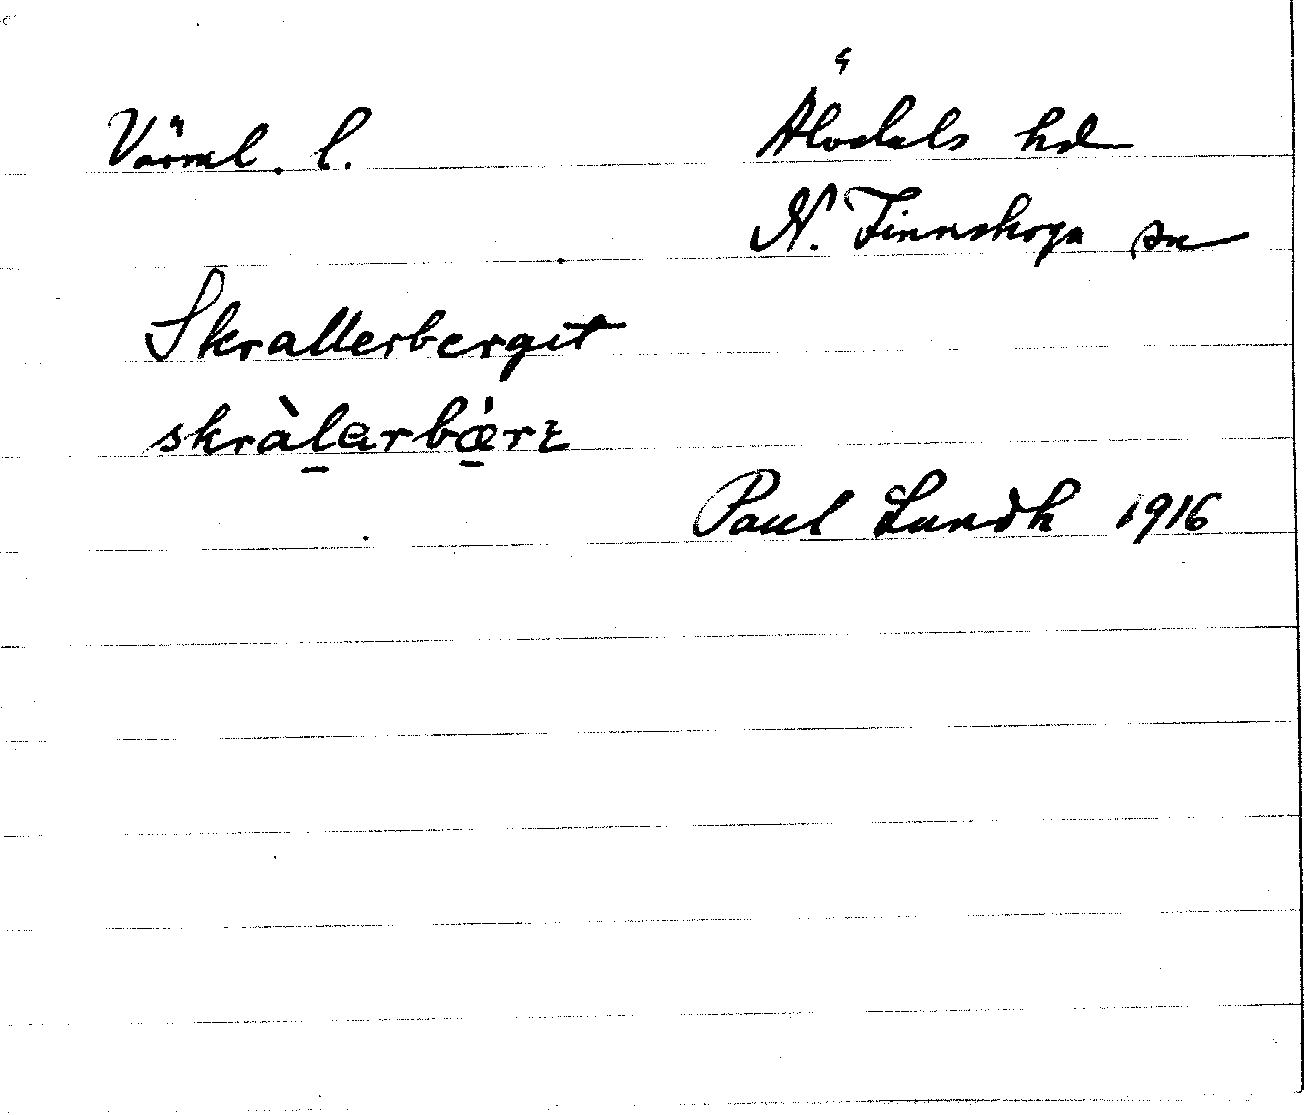 Värml. l.
Älvdals hd
N. Finnskoga sn
Skrallerberget
skràlarbæ̀rɛ
Paul Lundh 1916